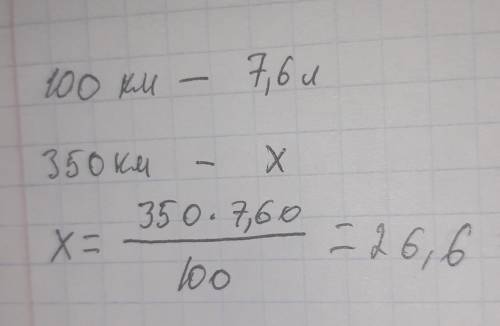 100 км – 7,6 л
350 км – х
х = 350 · 7,60 / 100 = 26,6